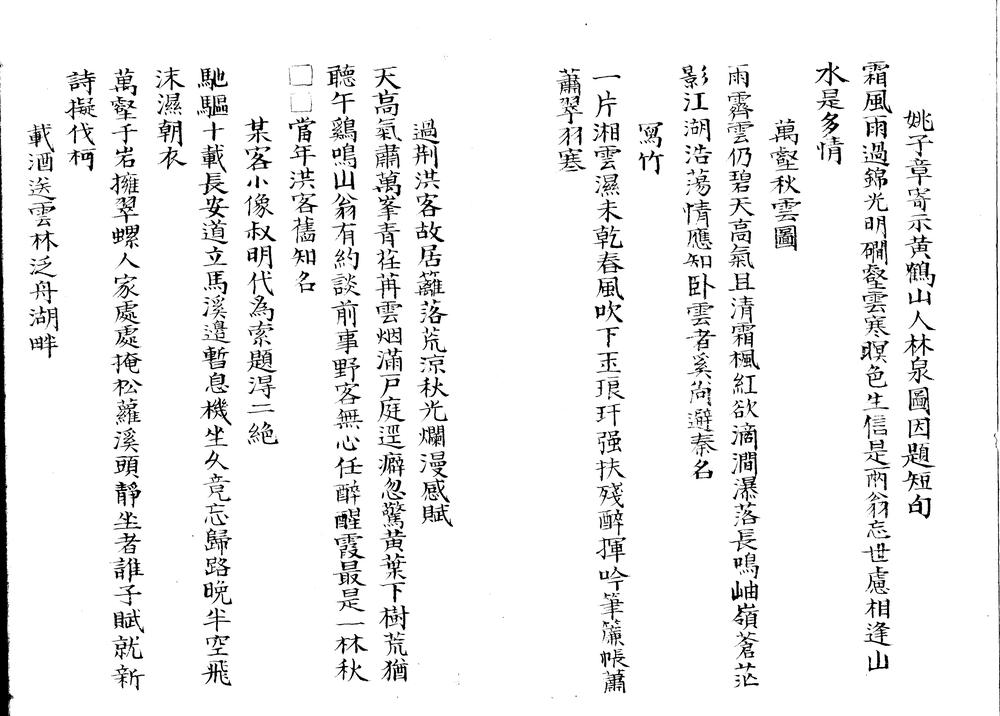 姚子章寄示黃鶴山人林泉圖因題短句
霜風雨過錦光明磵壑雲寒暝色生信是兩翁忘世慮相逢山
水是多情
萬壑秋雲圖
雨霽雲仍碧天高氣且清霜楓紅欲滴澗瀑落長鳴岫嶺蒼茫
影江湖浩蕩情應知卧雲者奚尚避秦名
寫竹
一片湘雲濕未乾春風吹下玉琅玕强扶殘醉揮吟筆簾帳蕭
蕭翠羽寒
過荆洪客故居籬落荒涼秋光爛漫感賦
天高氣肅萬峯青荏苒雲烟滿戸庭逕癖忽驚黃葉下樹荒猶
聽午鷄鳴山翁有約談前事野客無心任醉醒霞最是一林秋
□□當年洪客舊知名
某客小像叔明代為索題得二絶
馳驅十載長安道立馬溪邊暫息機坐久竟忘歸路晚半空飛
沫濕朝衣
萬壑千岩擁翠螺人家處處掩松蘿溪頭靜坐者誰子賦就新
詩擬伐柯
載酒送雲林泛舟湖畔